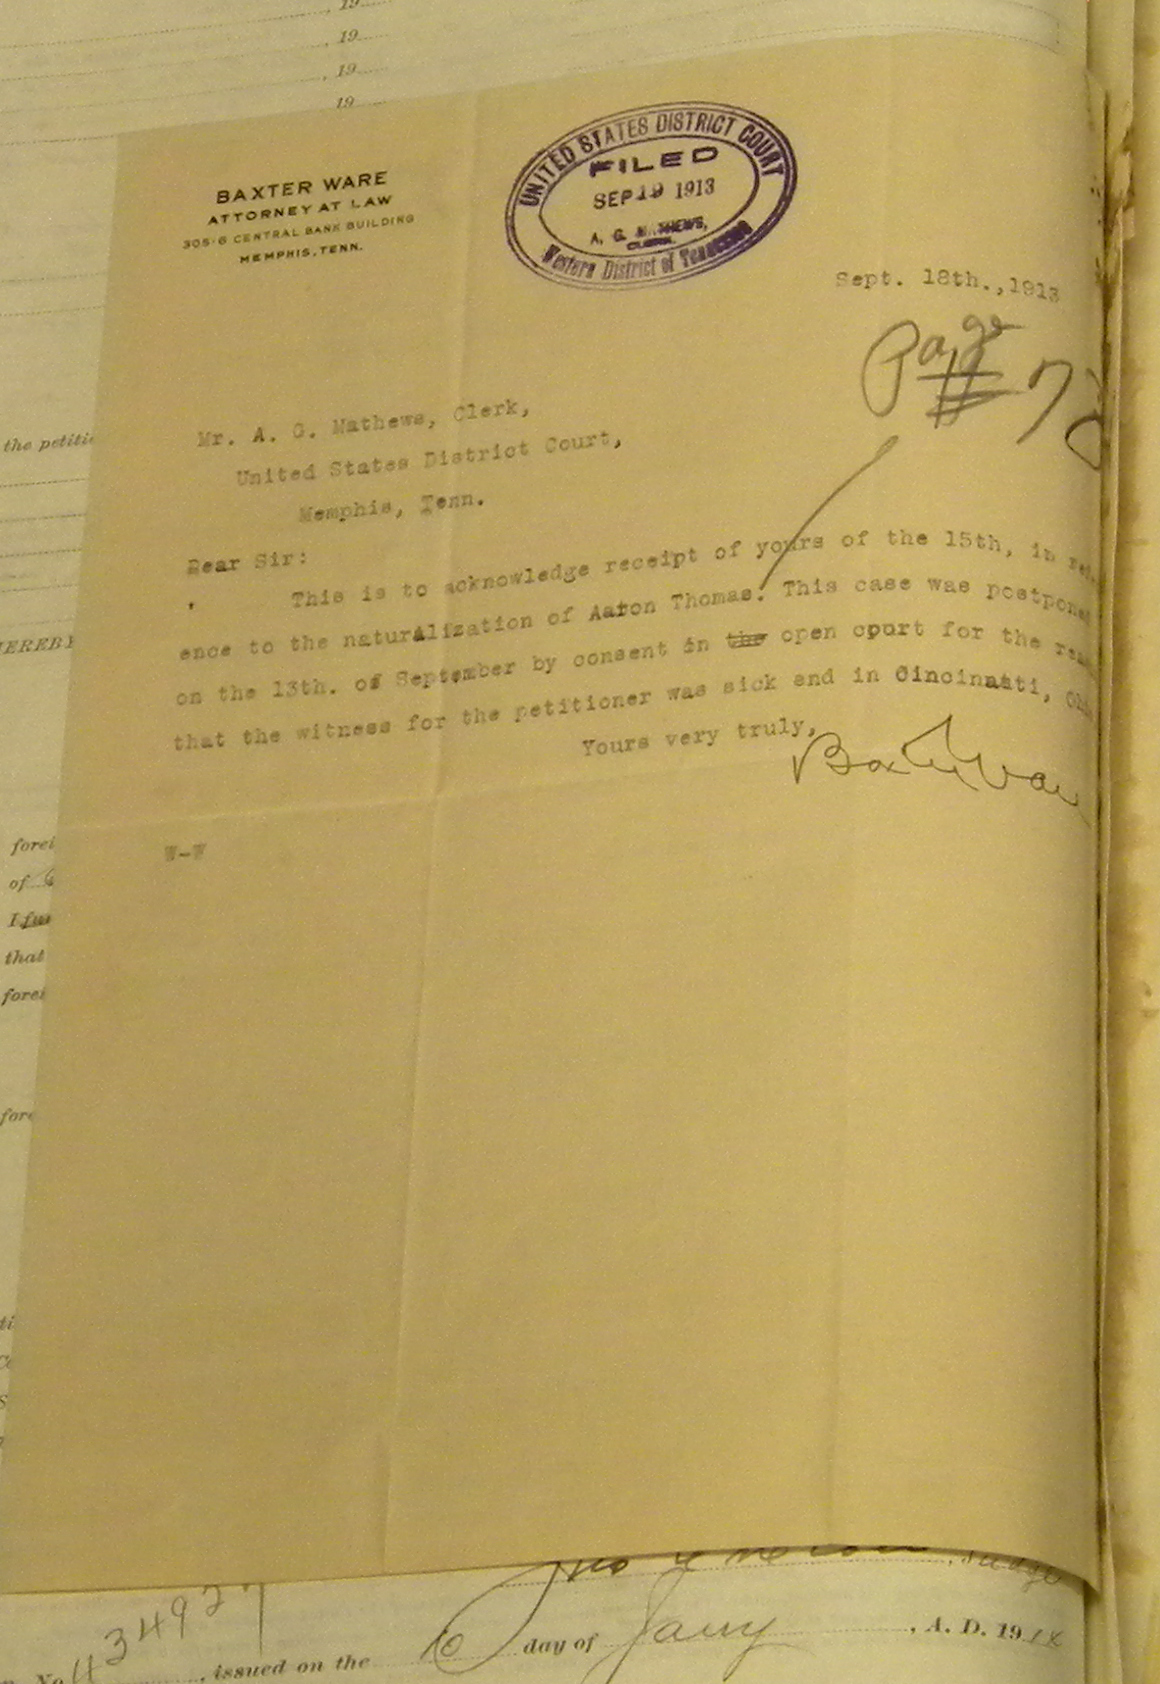 , 19
, 19
, 19
19
BAXTER WARE
ATTORNEY AT LAW
305-6 CENTRAL BANK BUILDING
MEMPHIS, TENN.
UNITED STATES DISTRICT COURT
FILED
SEP 19 1913
A. G. MATHEWS,
CLERK.
Western District of Tennessee
Sept. 18th.,1913
Page
Mr. A. G. Mathews, Clerk,
United States District Court,
Memphis, Tenn.
Dear Sir:
This is to acknowledge receipt of yours of the 15th, in
ence to the naturalization of Aaron Thomas. This case was postponed
on the 13th. of September by consent in the open court for the
that the witness for the petitioner was sick and in Cincinnati,
Yours very truly,
Baxter Ware
W-W
the petiti
EREBY
forei
of
I fur
that
forei
fore
Judge
No 434927, issued on the 6 day of Jany, A. D. 19